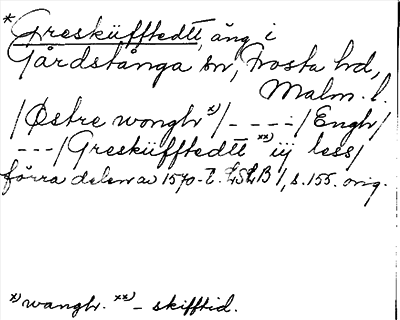 *Gresküfftedt, äng i
Gårdstånga sn, Frosta hd,
Malm. l.
/Østre wonghr x)/----/Engh/
---/Gresküfftedt xx) iij less/
förra delen av 1570-t. LSLB 1, s. 155. orig.
x) wanghr. xx) - skifftid.